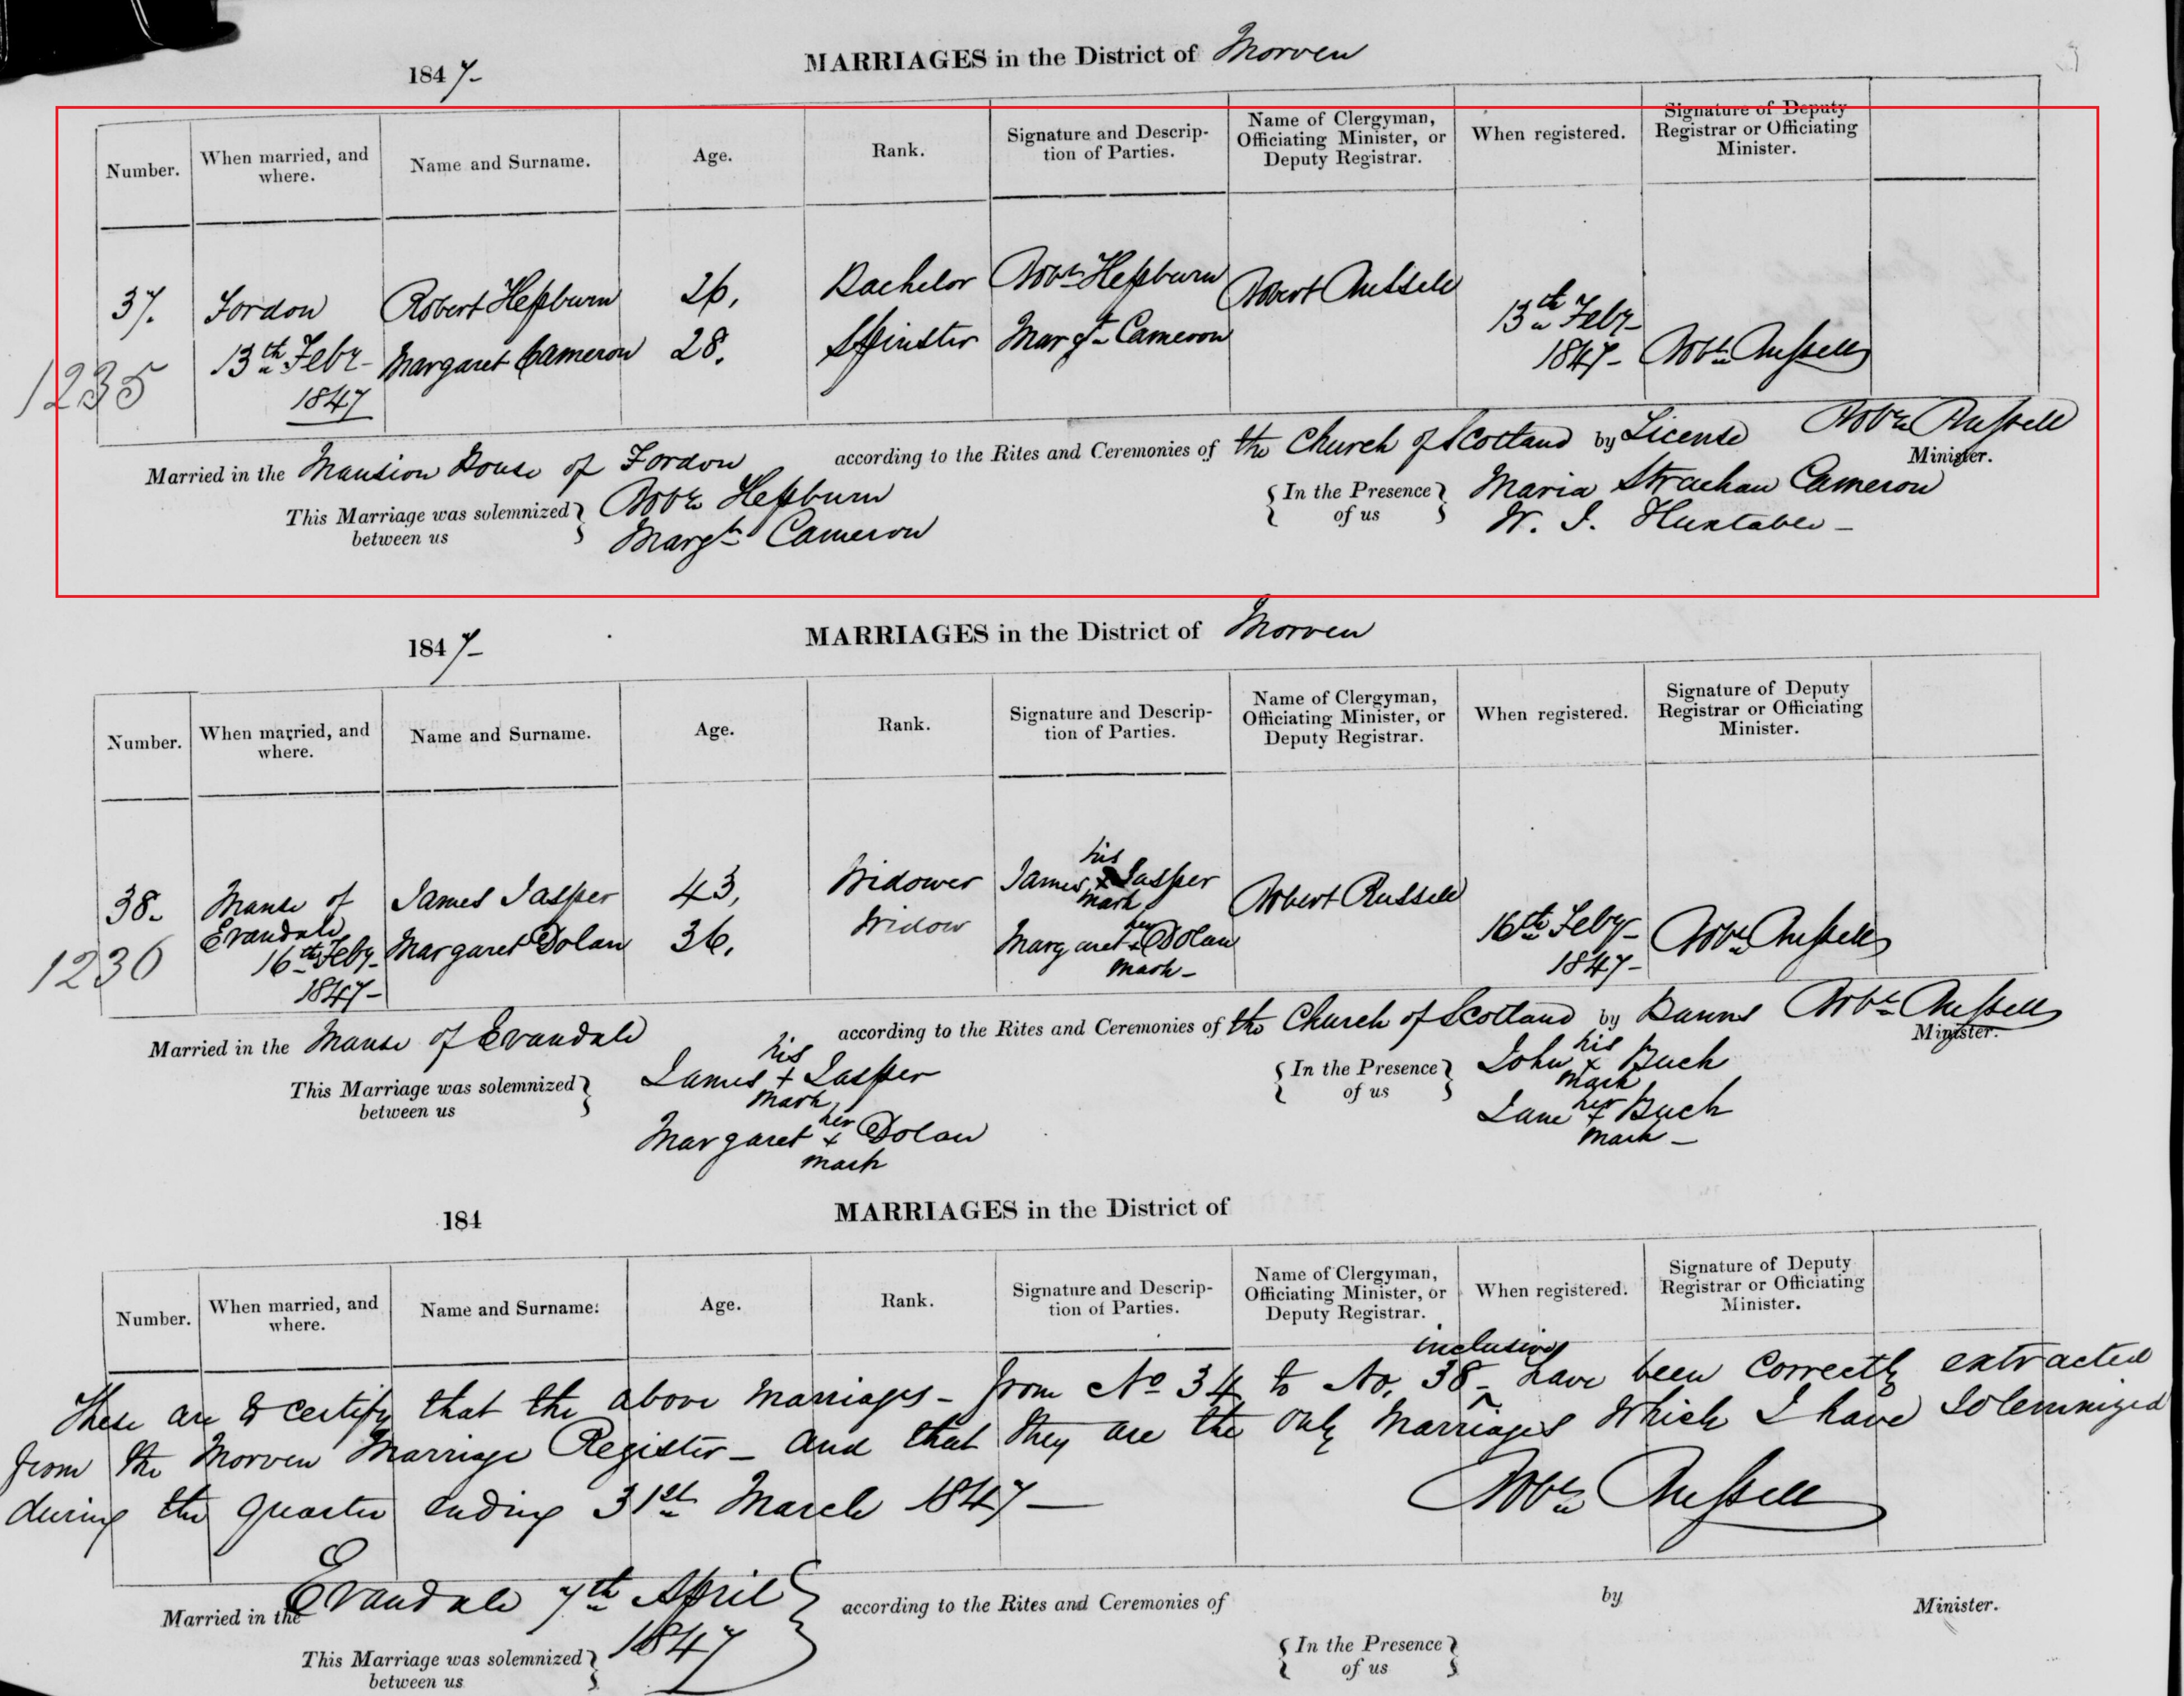 1847-
MARRIAGES in the District of Morven
Number.
When married, and where.
Name and Surname.
Age.
Rank.
Signature and Descrip-
tion of Parties.
Name of Clergyman,
Officiating Minister, or
Deputy Registrar.
When registered.
Signature of Deputy
Registrar or Officiating
Minister.
37. Fordon Robert Hepburn 26, Bachelor Robt Hepburn Robert Russell
13th Feby- Margaret Cameron 28. Spinster Margt Cameron 13th Feby-
1847 1847- Robt Russell
1235
Married in the Mansion House of Fordon according to the Rites and Ceremonies of the Church of Scotland by License Robt Russell
Minister.
This Marriage was solemnized between us
Robt Hepburn
Margt Cameron
In the Presence of us
Maria Strachan Cameron
W. I. Huxtable-
1847-
MARRIAGES in the District of Morven
Number.
When married, and where.
Name and Surname.
Age.
Rank.
Signature and Descrip-
tion of Parties.
Name of Clergyman,
Officiating Minister, or
Deputy Registrar.
When registered.
Signature of Deputy
Registrar or Officiating
Minister.
38. Manse of Evandale James Jasper 43, Widower James his x mark Jasper Robert Russell
16th Feby- 1847- Margaret Dolan 36, Widow Margaret her x mark- Dolan 16th Feby- 1847- Robt Russell
1236
Married in the Manse of Evandale according to the Rites and Ceremonies of the Church of Scotland by Banns Robt Russell
Minister.
This Marriage was solemnized between us
James his + mark Jasper
Margaret her + mark Dolan
In the Presence of us
John his x mark Buck
Jane her + mark- Buck
184
MARRIAGES in the District of
Number.
When married, and where.
Name and Surname.
Age.
Rank.
Signature and Descrip-
tion of Parties.
Name of Clergyman,
Officiating Minister, or
Deputy Registrar.
When registered.
Signature of Deputy
Registrar or Officiating
Minister.
These are to certify that the above Marriages- from No 34 to No. 38- inclusive have been correctly extracted
from the Morven Marriage Register- and that they are the only Marriages which I have Solemnized
during the quarter ending 31st March 1847- Robt Russell
Evandale 7th April
1847
Married in the according to the Rites and Ceremonies of by Minister.
This Marriage was solemnized between us
In the Presence of us